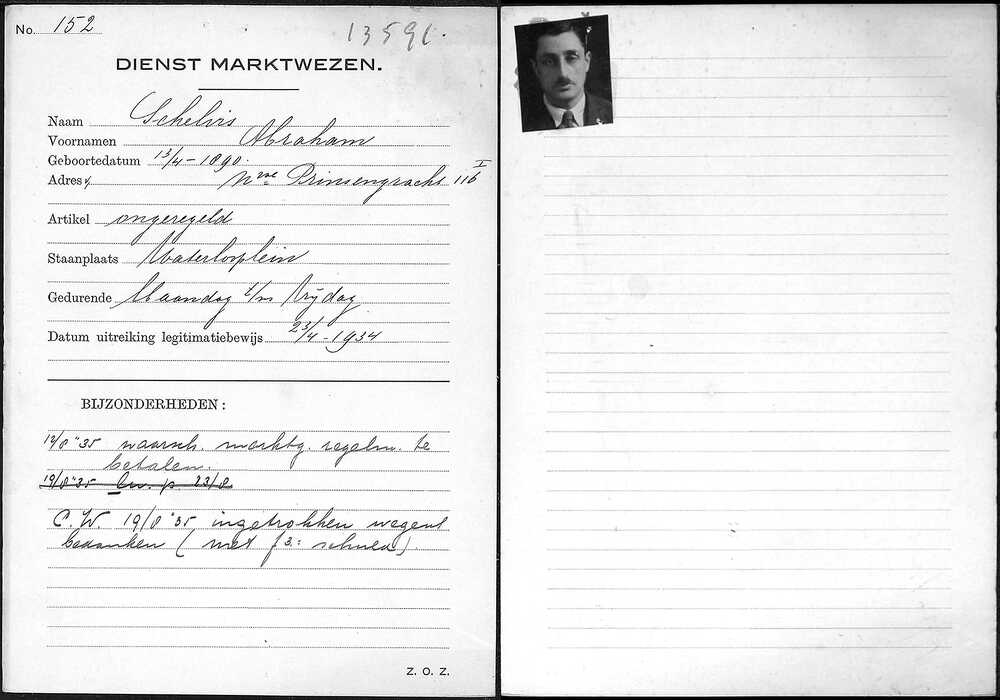 No. 152
13591.
DIENST MARKTWEZEN.
Naam Schelvis
Voornamen Abraham
Geboortedatum 13/4-1890.
Adres: Nwe Prinsengracht 116 I
Artikel ongeregeld
Staanplaats Waterlooplein
Gedurende Maandag t/m Vrijdag
Datum uitreiking legitimatiebewijs 23/4-1934
BIJZONDERHEDEN:
12/8 '35 waarsch. marktg. regelm. te
betalen.
19/8 '35 p. 23/8
C.W. 19/8 '35 ingetrokken wegens
bedanken (met f 3.= schuld).
Z. O. Z.